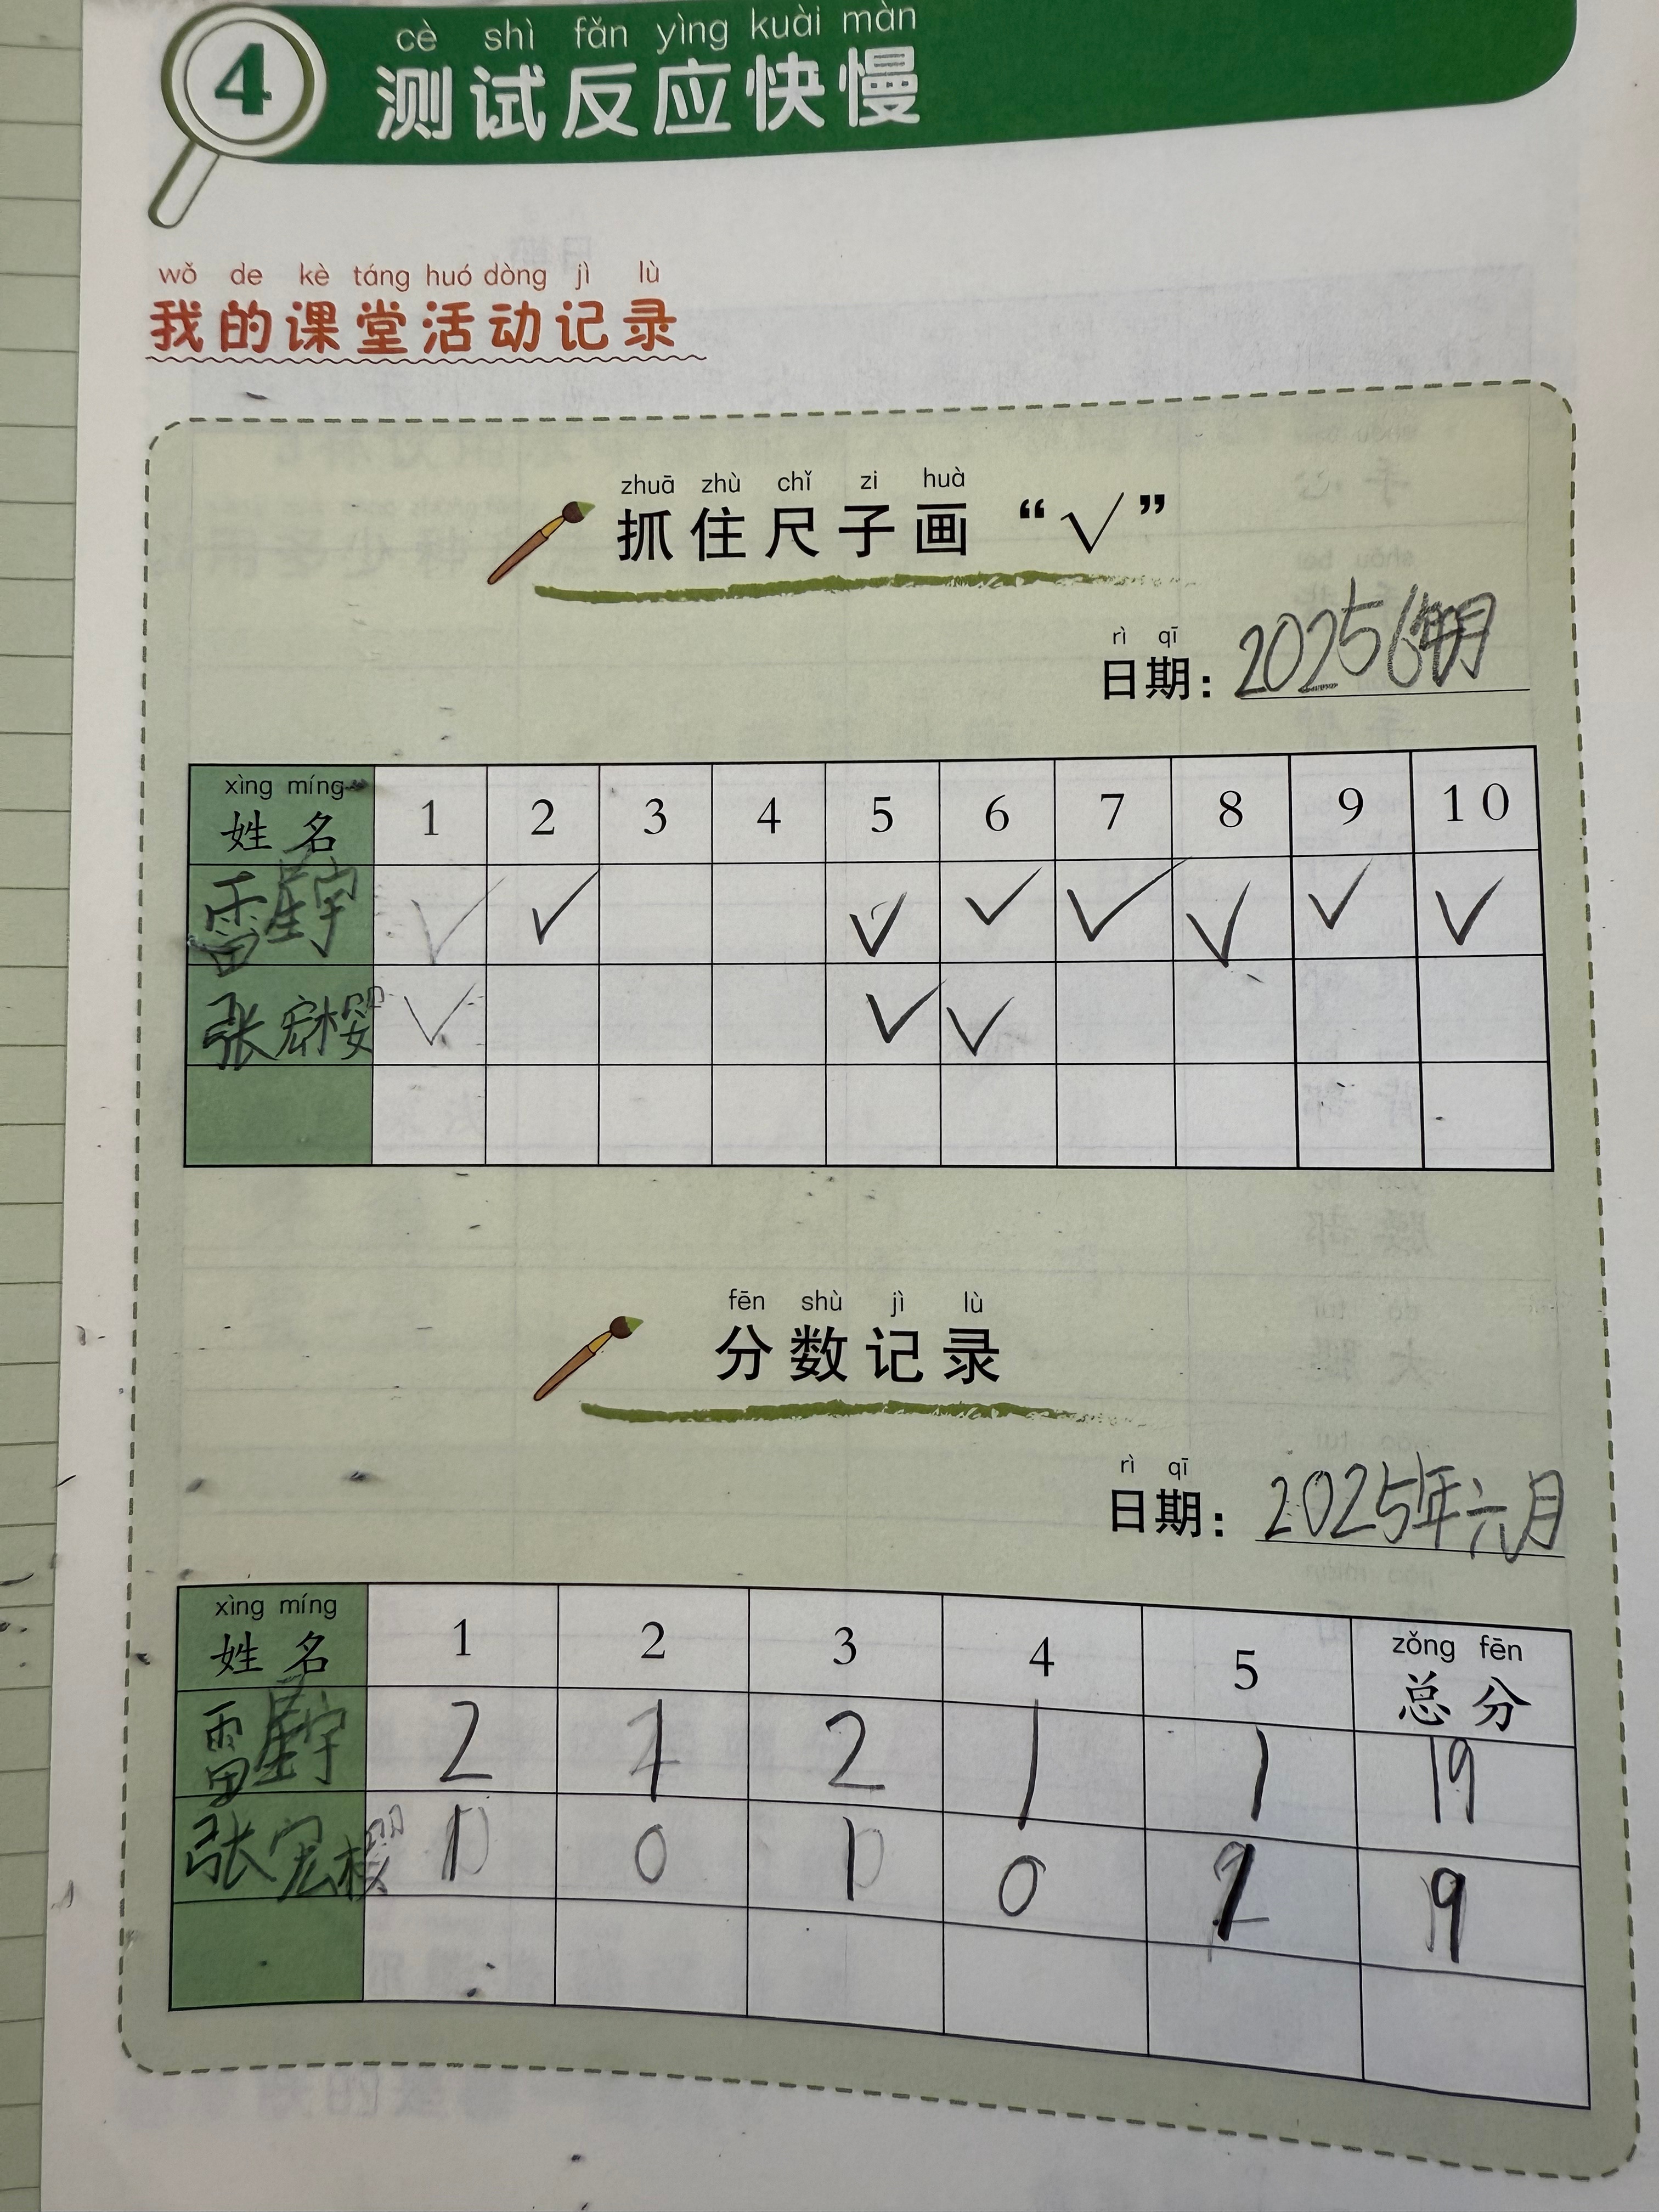 4
cè shì fǎn yìng kuài màn
测试反应快慢
wǒ de kè táng huó dòng jì lù
我的课堂活动记录
zhuā zhù chǐ zi huà
抓住尺子画“√”
rì qī
日期：2025年6月
xìng míng
姓名 1 2 3 4 5 6 7 8 9 10
雷星宇 √ √ √ √ √ √ √ √
张宏樱 √ √ √
fēn shù jì lù
分数记录
rì qī
日期：2025年六月
xìng míng zǒng fēn
姓名 1 2 3 4 5 总分
雷星宇 2 1 2 1 1 19
张宏樱 1 0 1 0 1 9